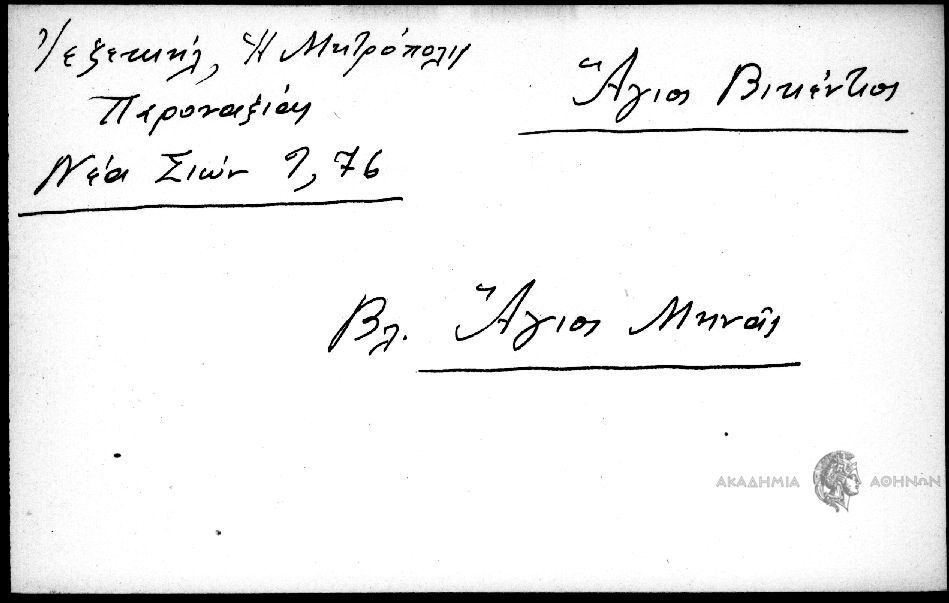 Ἰεζεκιήλ, Ἡ Μητρόπολις
Παροναξίας
Νέα Σιών 9, 76
Ἅγιος Βικέντιος
Βλ. Ἅγιος Μηνᾶς
ΑΚΑΔΗΜΙΑ ΑΘΗΝΩΝ